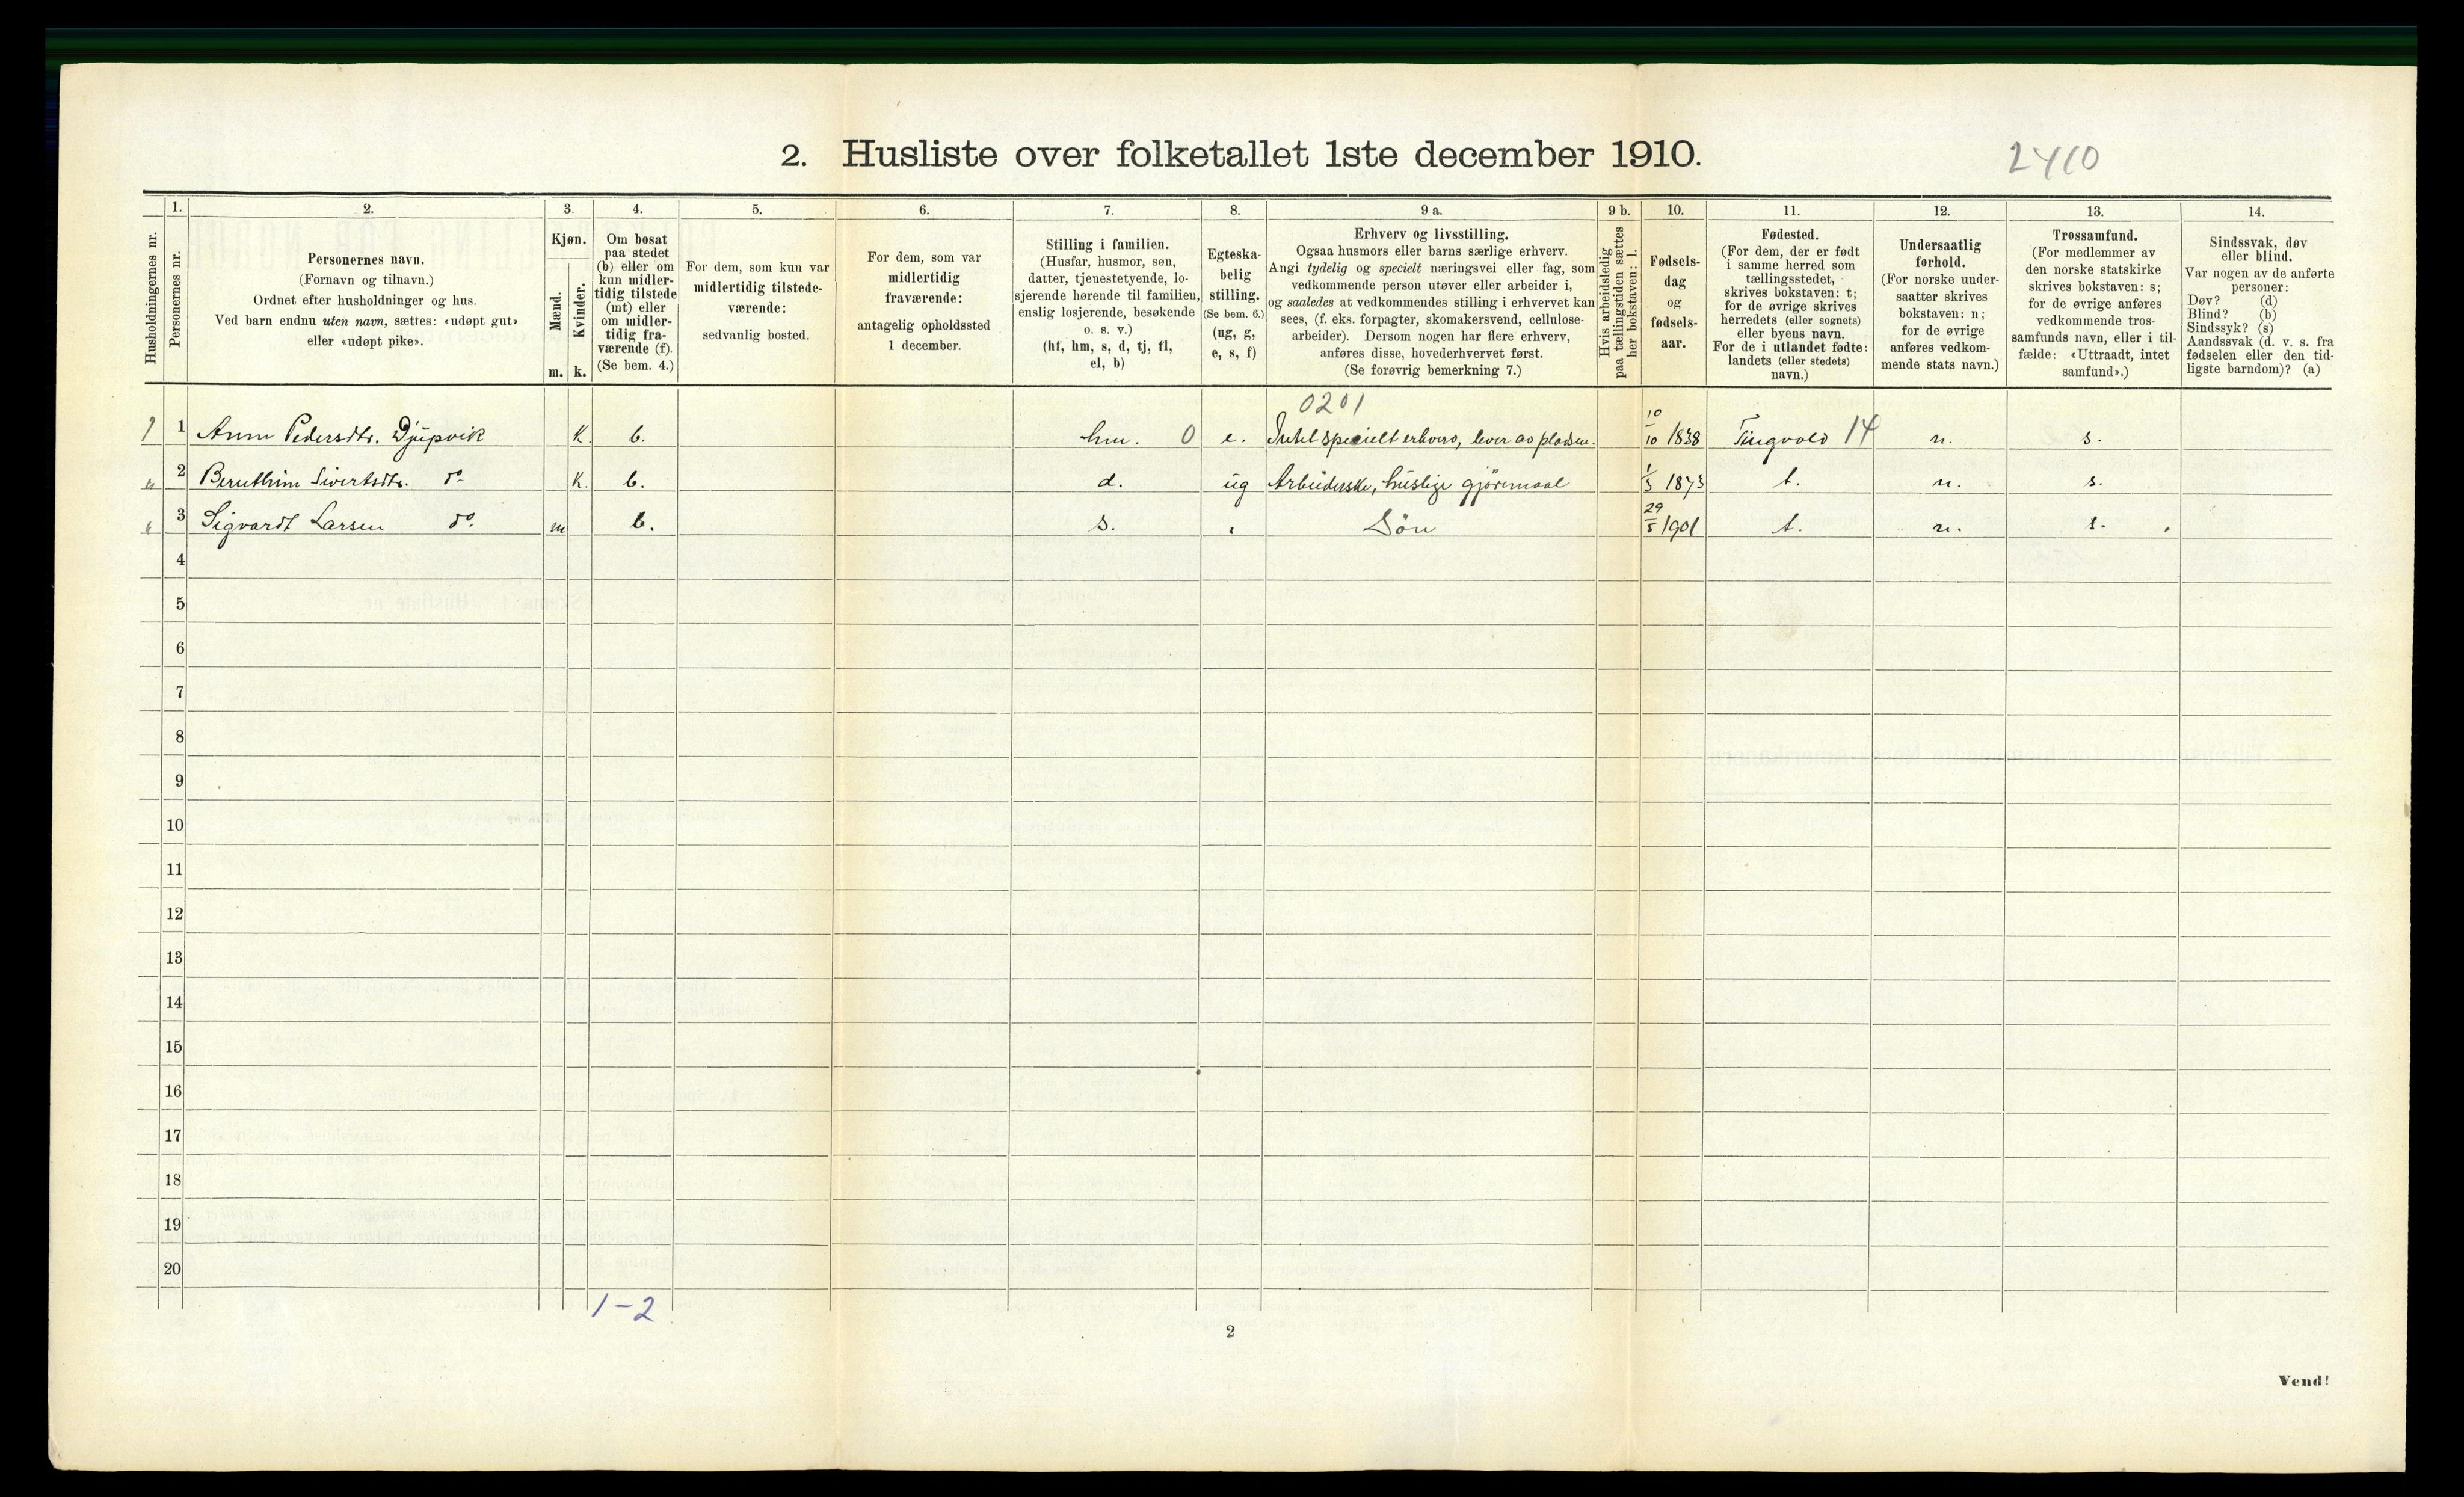 2. Husliste over folketallet 1ste december 1910.
2410
Husholdningernes nr.
1.
Personernes nr.
2.
Personernes navn.
(Fornavn og tilnavn.)
Ordnet efter husholdninger og hus.
Ved barn endnu uten navn, sættes: «udøpt gut»
eller «udøpt pike».
3.
Kjøn.
Mænd.
Kvinder.
m. k.
4.
Om bosat
paa stedet
(b) eller om
kun midler-
tidig tilstede
(mt) eller
om midler-
tidig fra-
værende (f).
(Se bem. 4.)
5.
For dem, som kun var
midlertidig tilstede-
værende:
sedvanlig bosted.
6.
For dem, som var
midlertidig
fraværende:
antagelig opholdssted
1 december.
7.
Stilling i familien.
(Husfar, husmor, søn,
datter, tjenestetyende, lo-
sjerende hørende til familien,
enslig losjerende, besøkende
o. s. v.)
(hf, hm, s, d, tj, fl,
el, b)
8.
Egteska-
belig
stilling.
(Se bem. 6.)
(ug, g,
e, s, f)
9 a.
Erhverv og livsstilling.
Ogsaa husmors eller barns særlige erhverv.
Angi tydelig og specielt næringsvei eller fag, som
vedkommende person utøver eller arbeider i,
og saaledes at vedkommendes stilling i erhvervet kan
sees, (f. eks. forpagter, skomakersvend, cellulose-
arbeider). Dersom nogen har flere erhverv,
anføres disse, hovederhvervet først.
(Se forøvrig bemerkning 7.)
9 b.
Hvis arbeidsledig
paa tællingstiden sættes
her bokstaven: l.
10.
Fødsels-
dag
og
fødsels-
aar.
11.
Fødested.
(For dem, der er født
i samme herred som
tællingsstedet,
skrives bokstaven: t;
for de øvrige skrives
herredets (eller sognets)
eller byens navn.
For de i utlandet fødte:
landets (eller stedets)
navn.)
12.
Undersaatlig
forhold.
(For norske under-
saatter skrives
bokstaven: n;
for de øvrige
anføres vedkom-
mende stats navn.)
13.
Trossamfund.
(For medlemmer av
den norske statskirke
skrives bokstaven: s;
for de øvrige anføres
vedkommende tros-
samfunds navn, eller i til-
fælde: «Uttraadt, intet
samfund».)
14.
Sindssvak, døv
eller blind.
Var nogen av de anførte
personer:
Døv? (d)
Blind? (b)
Sindssyk? (s)
Aandssvak (d. v. s. fra
fødselen eller den tid-
ligste barndom)? (a)
0201
1 1 Anne Pedersdtr. Djupvik K. b. hm. 0 e. Intet specielt erhverv, lever av pladsen. 10/10 1838 Tingvold 14 n. s.
2 Sivertsdtr. do K. b. d. ug Arbeiderske, huslige gjöremaal 1/3 1873 t. n. s.
3 Sigvardt Larsen do. m b. s. Sön 29/5 1901 t. n. s.
4
5
6
7
8
9
10
11
12
13
14
15
16
17
18
19
20
1-2
2
Vend!